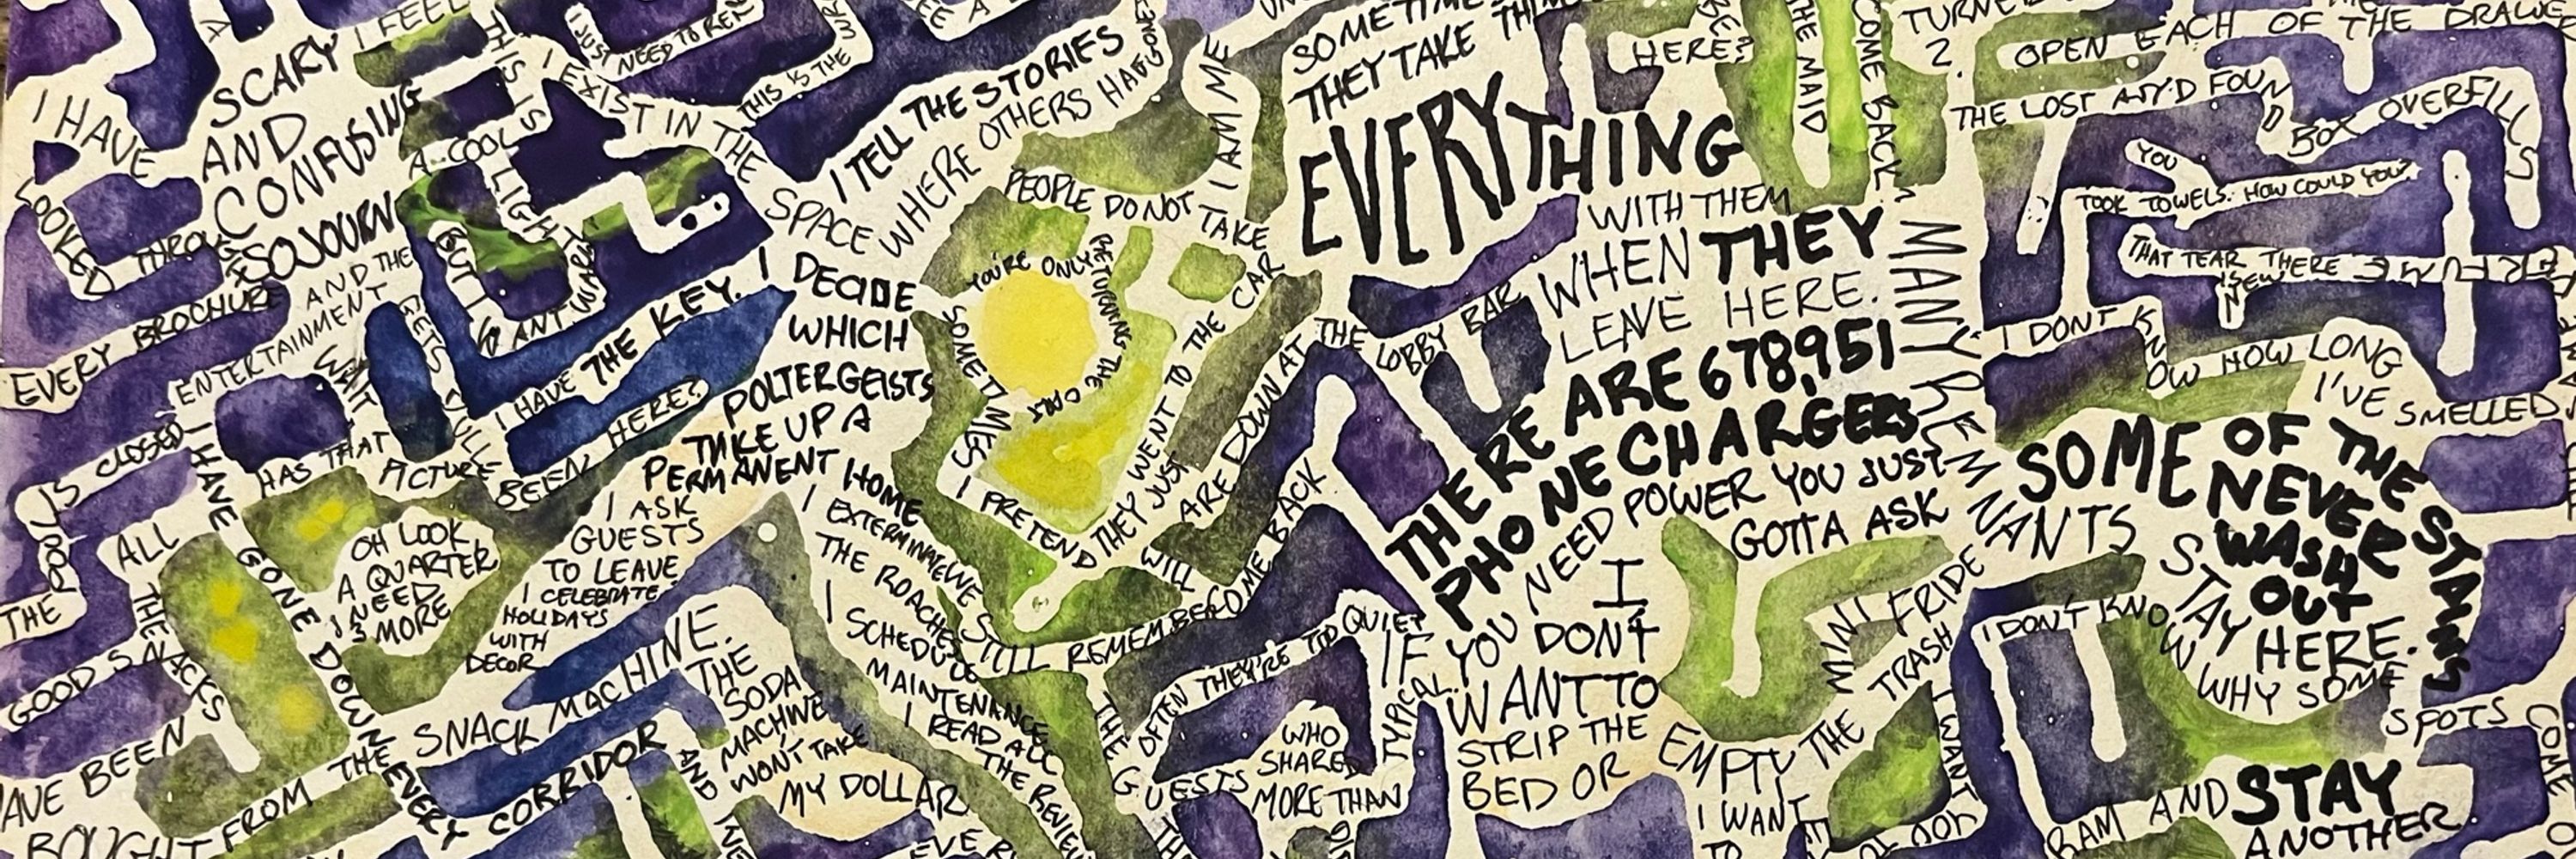 SCARY
AND
CONFUSING
SOJOURN
AND THE
ENTERTAINMENT
I FEEL
THIS IS
A COOL
LIGHT
BUT IS
ANT
WARY
I HAVE
LOOKED
THROUGH
EVERY BROCHURE
I JUST NEED TO
THIS IS THE
I EXIST IN THE
SPACE WHERE OTHERS HAVE
I TELL THE STORIES
I HAVE THE KEY.
HAS THAT
PICTURE
BEEN HERE?
I DECIDE
WHICH
POLTERGEISTS
TAKE UP A
PERMANENT HOME
I ASK
GUESTS
TO LEAVE
I CELEBRATE
HOLIDAYS
WITH
DECOR
I EXTERMINATE
THE ROACHES
I SCHEDULE
MAINTENANCE
I READ ALL
THE REVIEWS
THE
POOL
IS CLOSED
ALL
THE
GOOD SNACKS
HAVE BEEN
BOUGHT FROM THE
SNACK MACHINE.
THE
SODA
MACHINE
WON'T TAKE
MY DOLLAR
OH LOOK
A QUARTER
I NEED
3 MORE
I HAVE
GONE DOWN
EVERY CORRIDOR
AND
I AM ME
PEOPLE DO NOT TAKE
THE CAR
THEY WENT TO
THEY JUST
YOU'RE ONLY RETURNING THE CAR
SOMETIMES
I PRETEND
ARE DOWN AT THE
LOBBY BAR
WILL
COME BACK
WE
STILL REMEMBER
THE GUESTS
WHO
SHARED
MORE THAN
OFTEN THEY'RE TOO QUIET
TYPICAL
SOMETIMES
THEY TAKE
EVERYTHING
WITH THEM
WHEN THEY
LEAVE HERE.
THERE ARE 678,951
PHONE CHARGERS
IF YOU NEED POWER YOU JUST
GOTTA ASK
I
DON'T
WANT TO
STRIP THE
BED OR
EMPTY THE TRASH
MINI FRIDE
I WANT
TO
I WANT
HERE?
THE MAID
COME BACK
MANY REMNANTS
STAY HERE.
2. OPEN EACH OF THE
THE LOST AND FOUND
BOX OVERFILLS
YOU
TOOK TOWELS. HOW COULD YOU?
THAT TEAR THERE
IS NEW
I DONT KNOW HOW LONG
I'VE SMELLED
SOME OF THE STAINS
NEVER
WASH
OUT
I DON'T KNOW WHY SOME
SPOTS
COME
AND STAY
ANOTHER